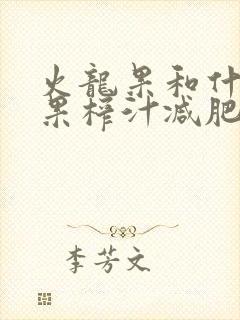 火龍果和什
果榨汁减肥
李芳文